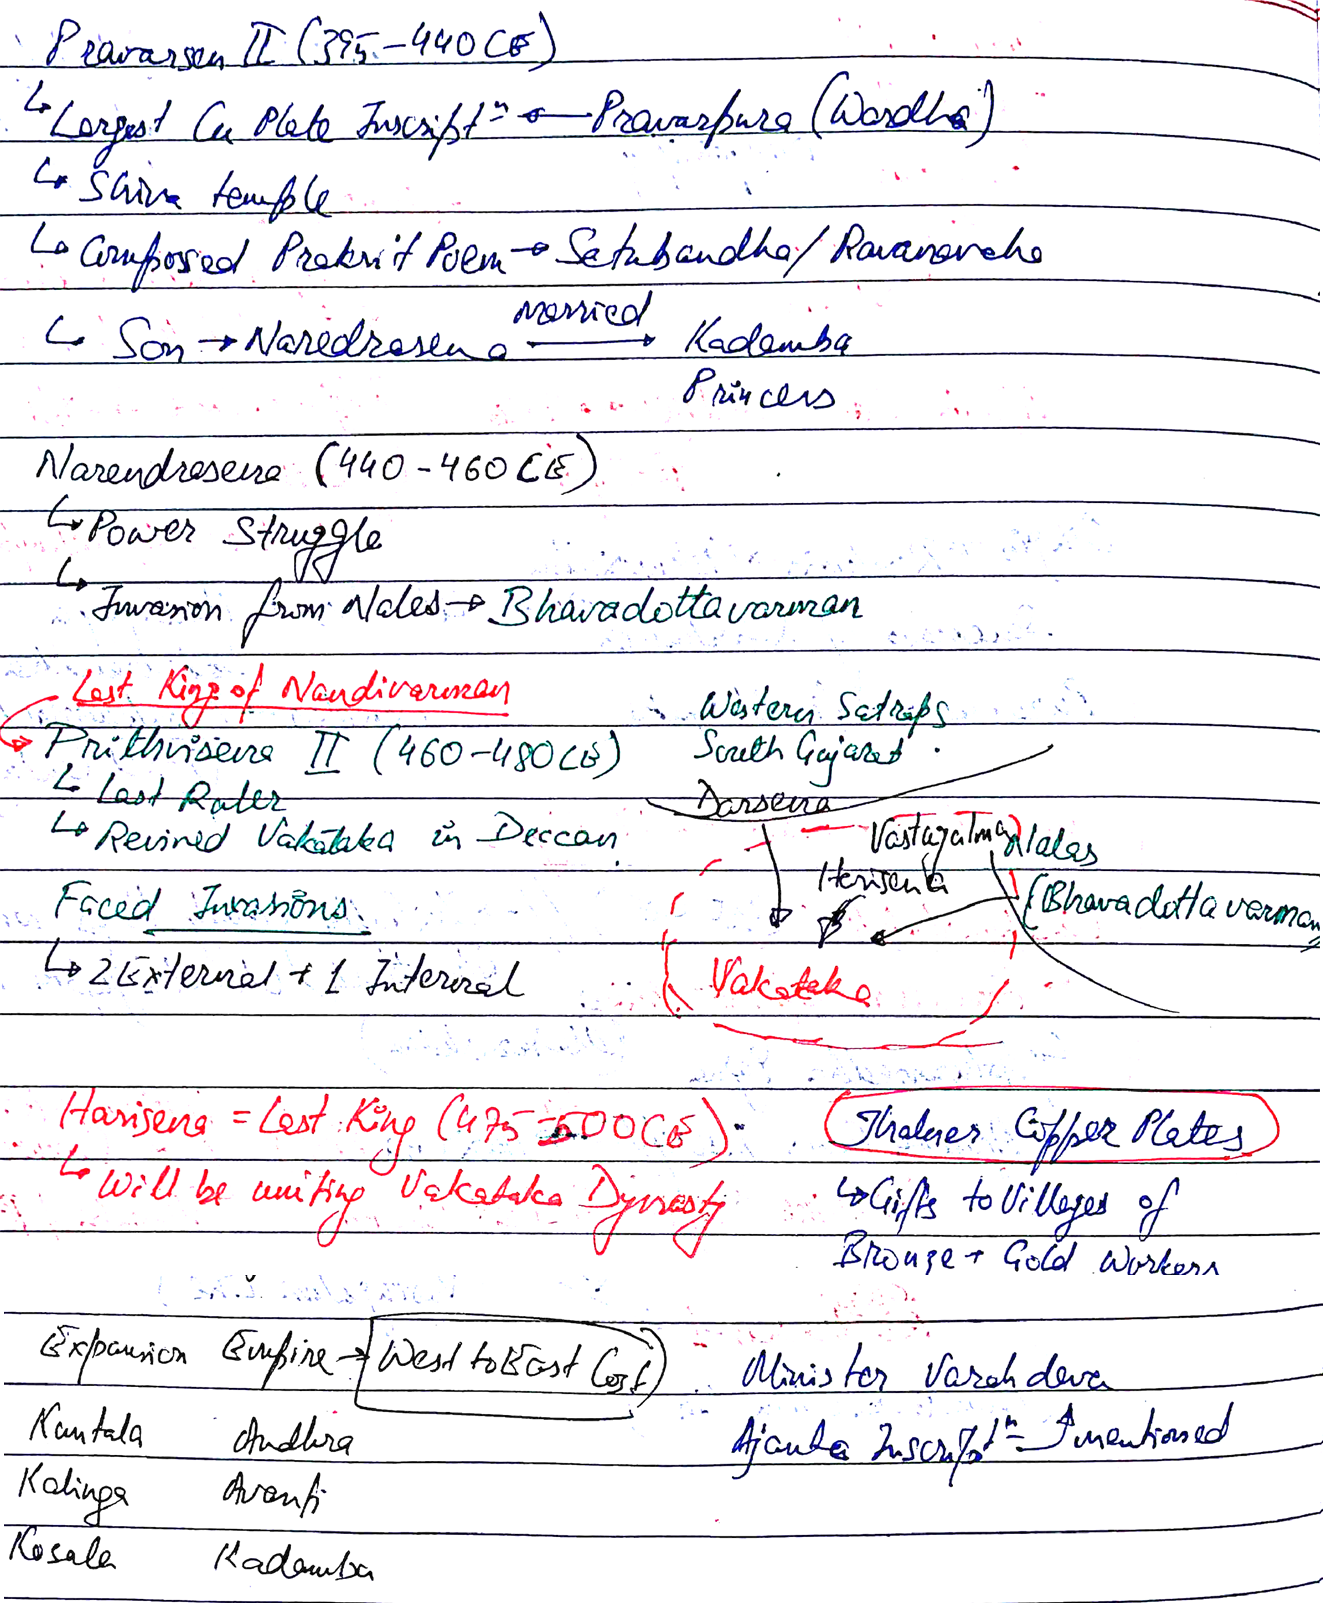 Pravarsen II (395-440 CE)
↳ Largest Cu Plate Inscriptⁿ ← Pravarpura (Wardha)
↳ Shiva temple
↳ Composed Prakrit Poem → Setubandha/ Ravanavaha
↳ Son → Naredrasena married → Kadamba
Princess
Narendrasena (440-460 CE)
↳ Power Struggle
↳ Invasion from Nalas → Bhavadottavarman
Last King of Nandivarman
Prithvisena II (460-480 CE)
↳ Last Ruler
↳ Revived Vakataka in Deccan
Western Satraps
South Gujarat
Darsena
Vastagulma
Nalas
Harisena
(Bhavadottavarman
Faced Invasions
↳ 2 External + 1 Internal
Vakataka
Harisena = Last King (475-500 CE)
↳ Will be uniting Vakataka Dynasty
Thalner Copper Plates
↳ Gifts to Villages of
Bronze + Gold Workers
Expansion Empire → West to East Cost
Kuntala Andhra
Kalinga Avanti
Kosala Kadamba
Minister Varahdeva
Ajanta Inscriptⁿ = ↑ mentioned